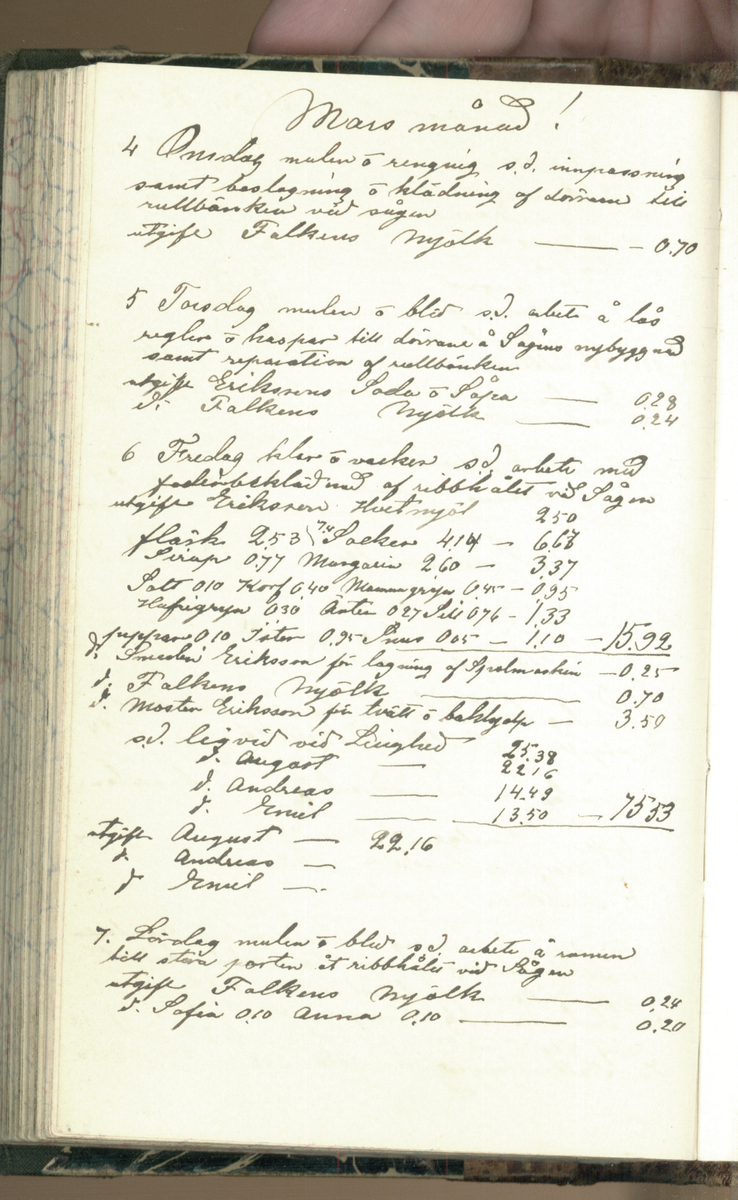 Mars månad!
4 Onsdag mulen o rengnig s.d. innpassning
samt beslagning o klädning af dörrarne till
rullbänken vid sågen
utgift Falkens Mjölk — 0.70
5 Torsdag mulen o blid s.d. arbete å lås
reglar o haspar till dörrarne å Sågens nybyggnad
samt reparation af rullbänken
utgift Erikssons Soda o Såpa — 0.28
d. Falkens Mjölk — 0.24
6 Fredag klar o vacker s.d. arbete med
af ribbhålet vid Sågen
utgift Eriksson Hvetmjöl 2.50
fläsk 2.53 Socker 4.14 — 6.67
Sirap 0.77 Margarin 2.60 — 3.37
Salt 0.10 Korf 0.40 Mannagryn 0.45 — 0.95
Hafregryn 0.30 Ärter 0.27 Sill 0.76 — 1.33
peppar 0.10 0.95 Snus 0.05 — 1.10 — 15.92
d. Smeden Eriksson för lagning af Spolmaskin — 0.25
d. Falkens Mjölk — 0.70
d. Moster Eriksson för tvätt o bakhjelp — 3.50
s.d. liqvid vid Linghed 25.38
d. August — 22.16
d. Andreas — 14.49
d. Emil — 13.50 — 75.53
utgift August — 22.16
d. Andreas —
d Emil —
7. Lördag mulen o blid s.d. arbete å ramen
till stora porten åt ribbhålet vid Sågen
utgift Falkens Mjölk — 0.24
d. Sofia 0.10 Anna 0.10 — 0.20